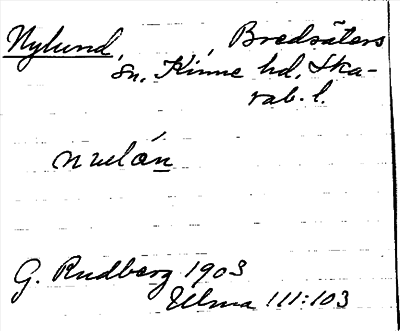 Nylund, Bredsäters
sn, Kinne hd, Ska-
rab. l.
G. Rudberg 1903
Ulma 111:103